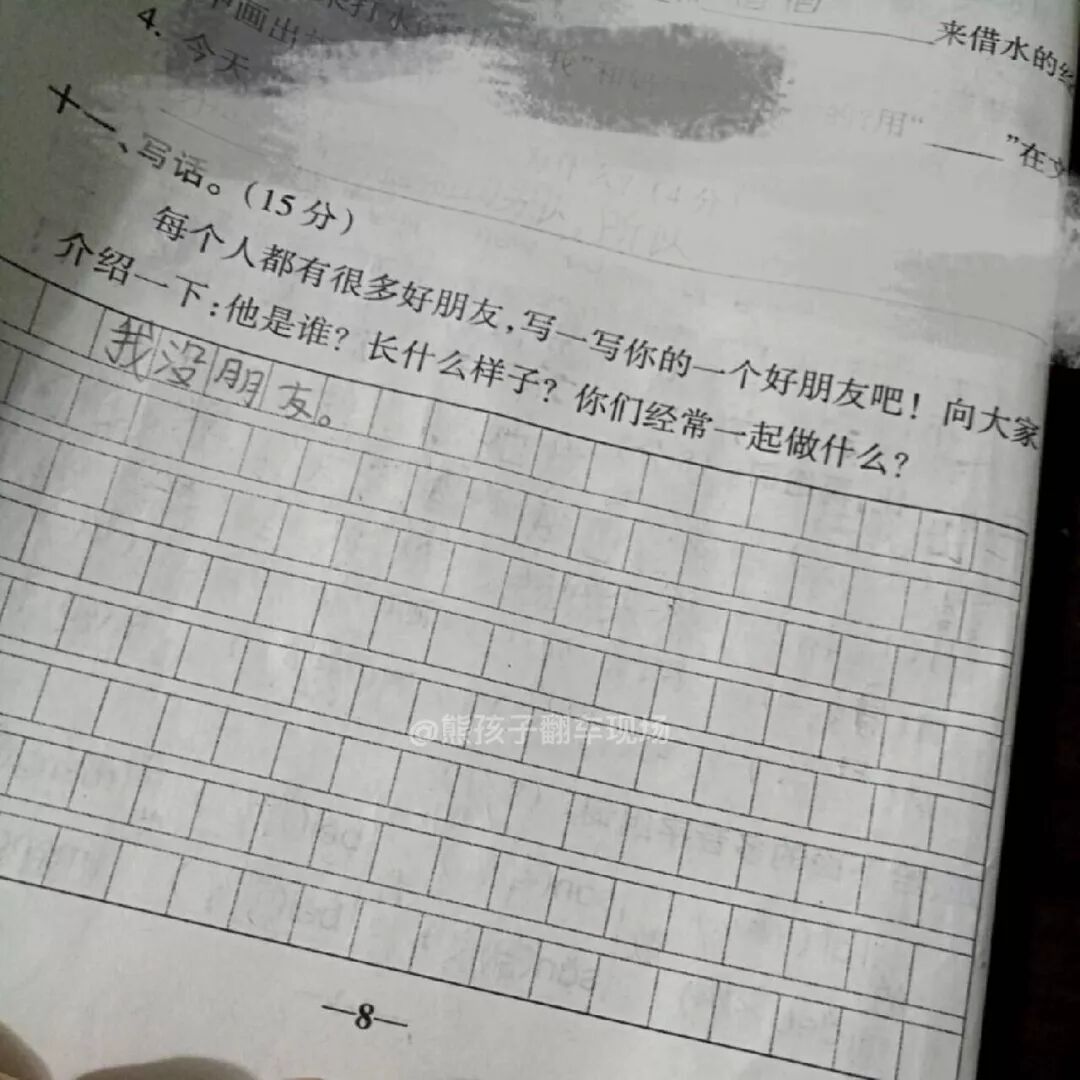 来借水的
4. 今天
用“____”在文
十一、写话。(15分)
每个人都有很多好朋友,写一写你的一个好朋友吧!向大家
介绍一下:他是谁?长什么样子?你们经常一起做什么?
我没朋友。
@熊孩子翻车现场
—8—